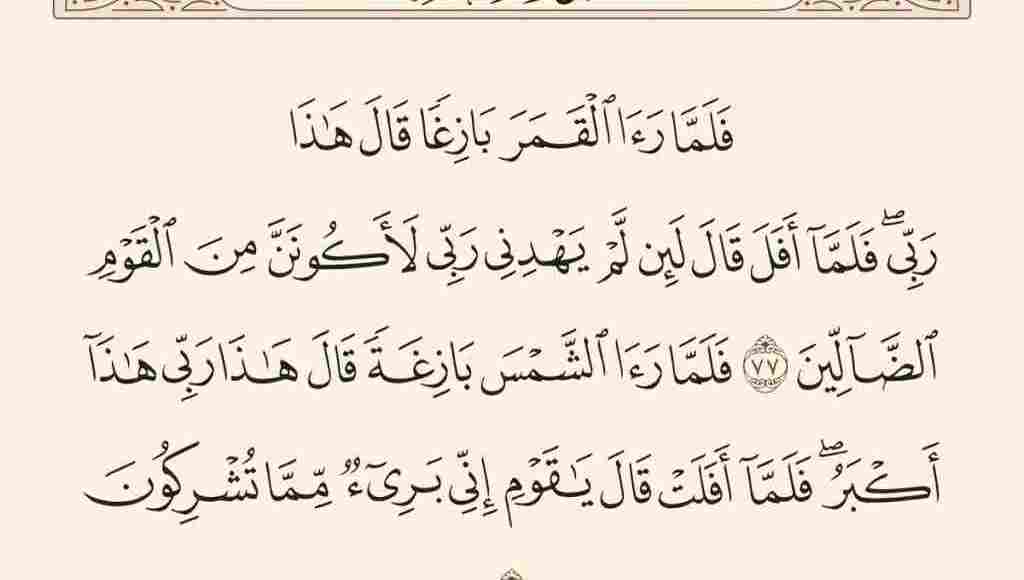 فَلَمَّا رَءَا ٱلْقَمَرَ بَازِغًا قَالَ هَـٰذَا
رَبِّى ۖ فَلَمَّآ أَفَلَ قَالَ لَئِن لَّمْ يَهْدِنِى رَبِّى لَأَكُونَنَّ مِنَ ٱلْقَوْمِ
ٱلضَّآلِّينَ ٧٧ فَلَمَّا رَءَا ٱلشَّمْسَ بَازِغَةً قَالَ هَـٰذَا رَبِّى هَـٰذَآ
أَكْبَرُ ۖ فَلَمَّآ أَفَلَتْ قَالَ يَـٰقَوْمِ إِنِّى بَرِىٓءٌ مِّمَّا تُشْرِكُونَ